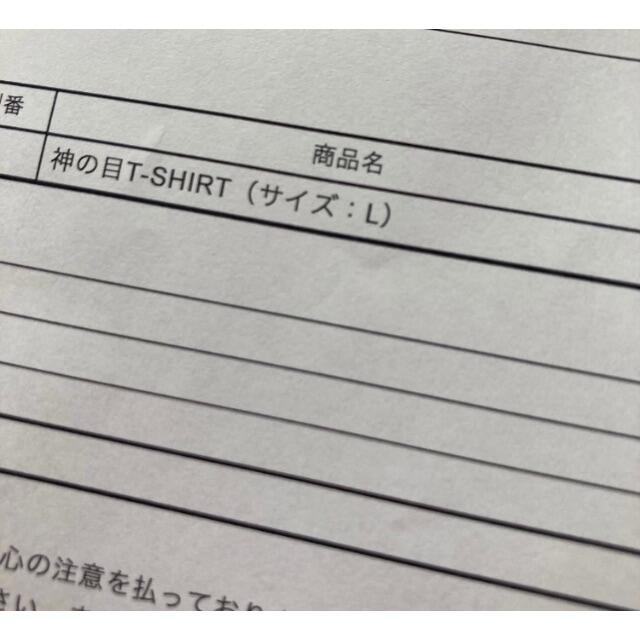 番
商品名
神の目T-SHIRT（サイズ：L）
心の注意を払っており
さい